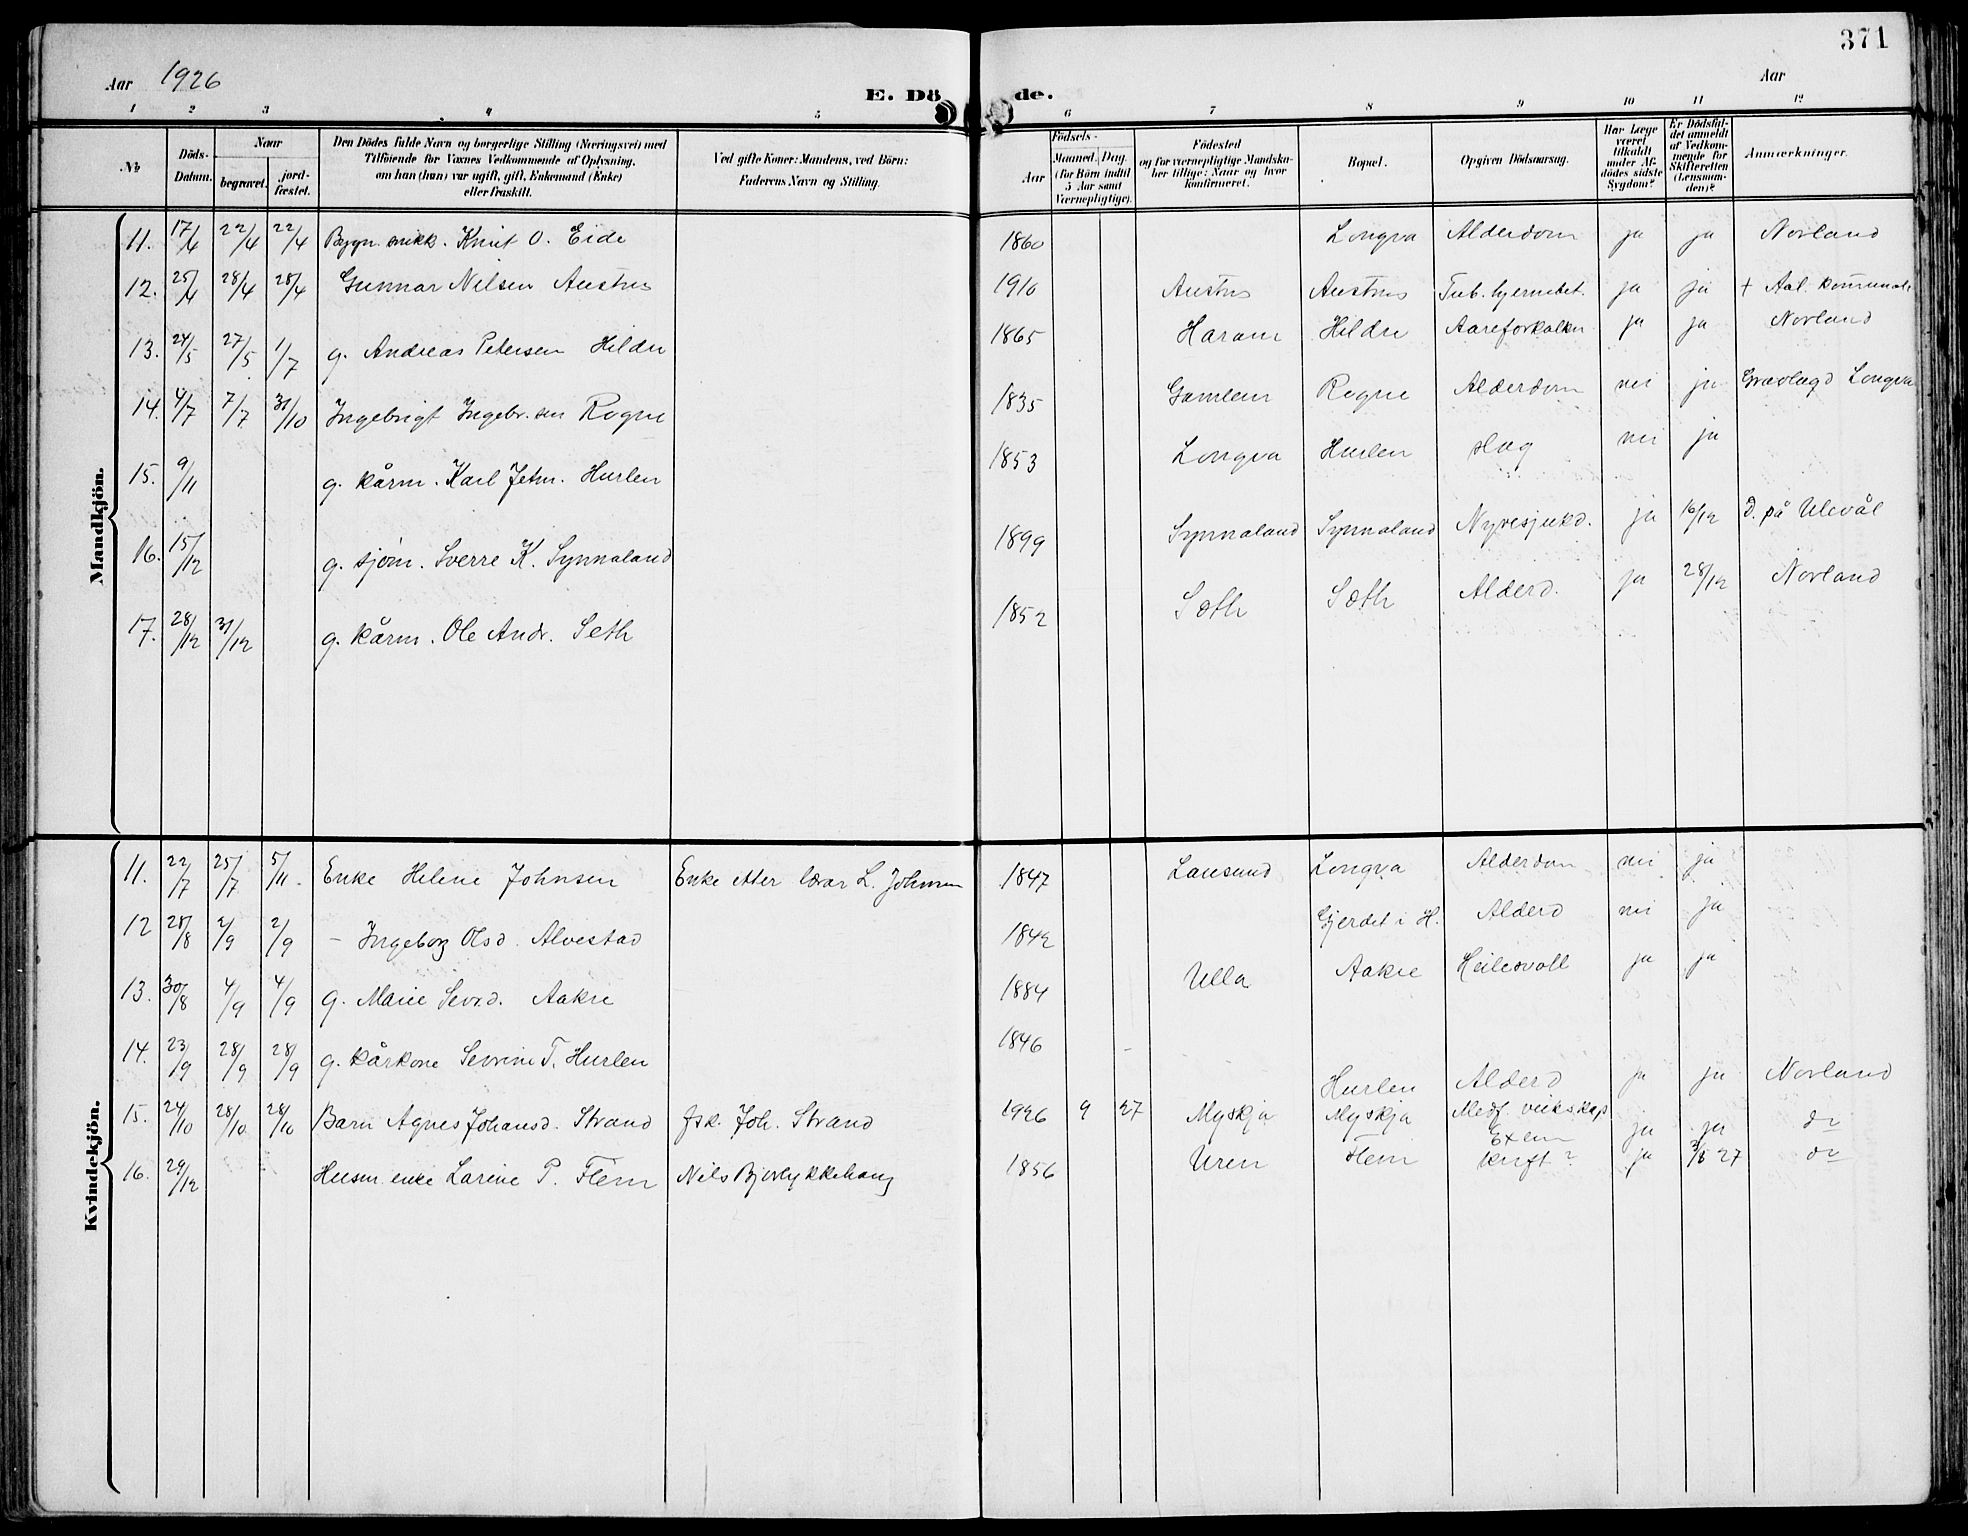 371
Aar 1926
E. Döde.
Aar
1 2 3 4 5 6 7 8 9 10 11 12
No
Döds-Datum.
Naar
begravet.
jord-fæstet.
Den Dödes fulde Navn og borgerlige Stilling (Næringsvei) med
Tilföiende for Voxnes Vedkommende af Oplysning,
om han (hun) var ugift, gift, Enkemand (Enke)
eller fraskilt.
Ved gifte Koner: Mandens, ved Börn:
Faderens Navn og Stilling.
Födsels-
Aar
Maaned. Dag
(for Börn indtil
5 Aar samt
Værnepligtige).
Födested
og for værnepligtige Mandska-
ber tillige: Naar og hvor
konfirmeret.
Bopæl.
Opgiven Dödsaarsag.
Har Læge
været
tilkaldt
under Af-
dödes sidste
Sygdom?
Er Dödsfal-
det anmeldt
af Vedkom-
mende for
Skifteretten
(Lensman-
den)?
Anmærkninger.
Mandkjön.
11. 17/4 22/4 22/4 Bygn. snikk. Knut O. Eide 1860 Longva Alderdom ja ja Norland
12. 25/4 28/4 28/4 Gunnar Nilsen Austnes 1910 Austnes Austnes Tub. hjernebet. ja ja + Aal. kommunale
13. 24/5 27/5 1/7 g. Andreas Petersen Hildre 1865 Haram Hildre Aareforkalkn ja ja Norland
14. 4/7 7/7 31/10 Ingebrigt Ingebr.sen Rogne 1835 Gamlem Rogne Alderdom nei ja Gravlagd Longva
15. 9/11 g. kårm. Karl Jetm. Hurlen 1853 Longva Hurlen slag nei ja
16. 15/12 g. sjøm. Sverre K. Synnaland 1899 Synnaland Synnaland Nyresjukd. ja 16/12 D. på Ulevål
17. 28/12 31/12 g. kårm. Ole Andr. Seth 1852 Sæth Sæth Alderd. ja 28/12 Norland
Kvindekjön.
11. 22/7 25/7 5/11. Enke Helene Johnsen Enke etter lærar L. Johnsen 1847 Lausund Longva Alderdom nei ja
12 28/8 2/9 2/9 – Ingeborg Olsd. Alvestad 1842 Gjerdet i H. Alderd nei ja
13. 30/8 4/9 4/9 g. Marie Sevrd. Aakre 1884 Ulla Aakre Heilesvoll ja ja
14. 23/9 28/9 28/9 g. kårkone Sevrine T. Hurlen 1846 Hurlen Alderd ja ja Norland
15. 24/10 28/10 28/10 Barn Agnes Johansd. Strand fsk. Joh. Strand 1926 9 27 Myskja Myskja Medf. veikskap Exem ja ja do
16. 29/12 Husm. enke Larine P. Flem Nils Bjorlykkehaug 1856 Uren Flem kreft? ja 3/5 27 do